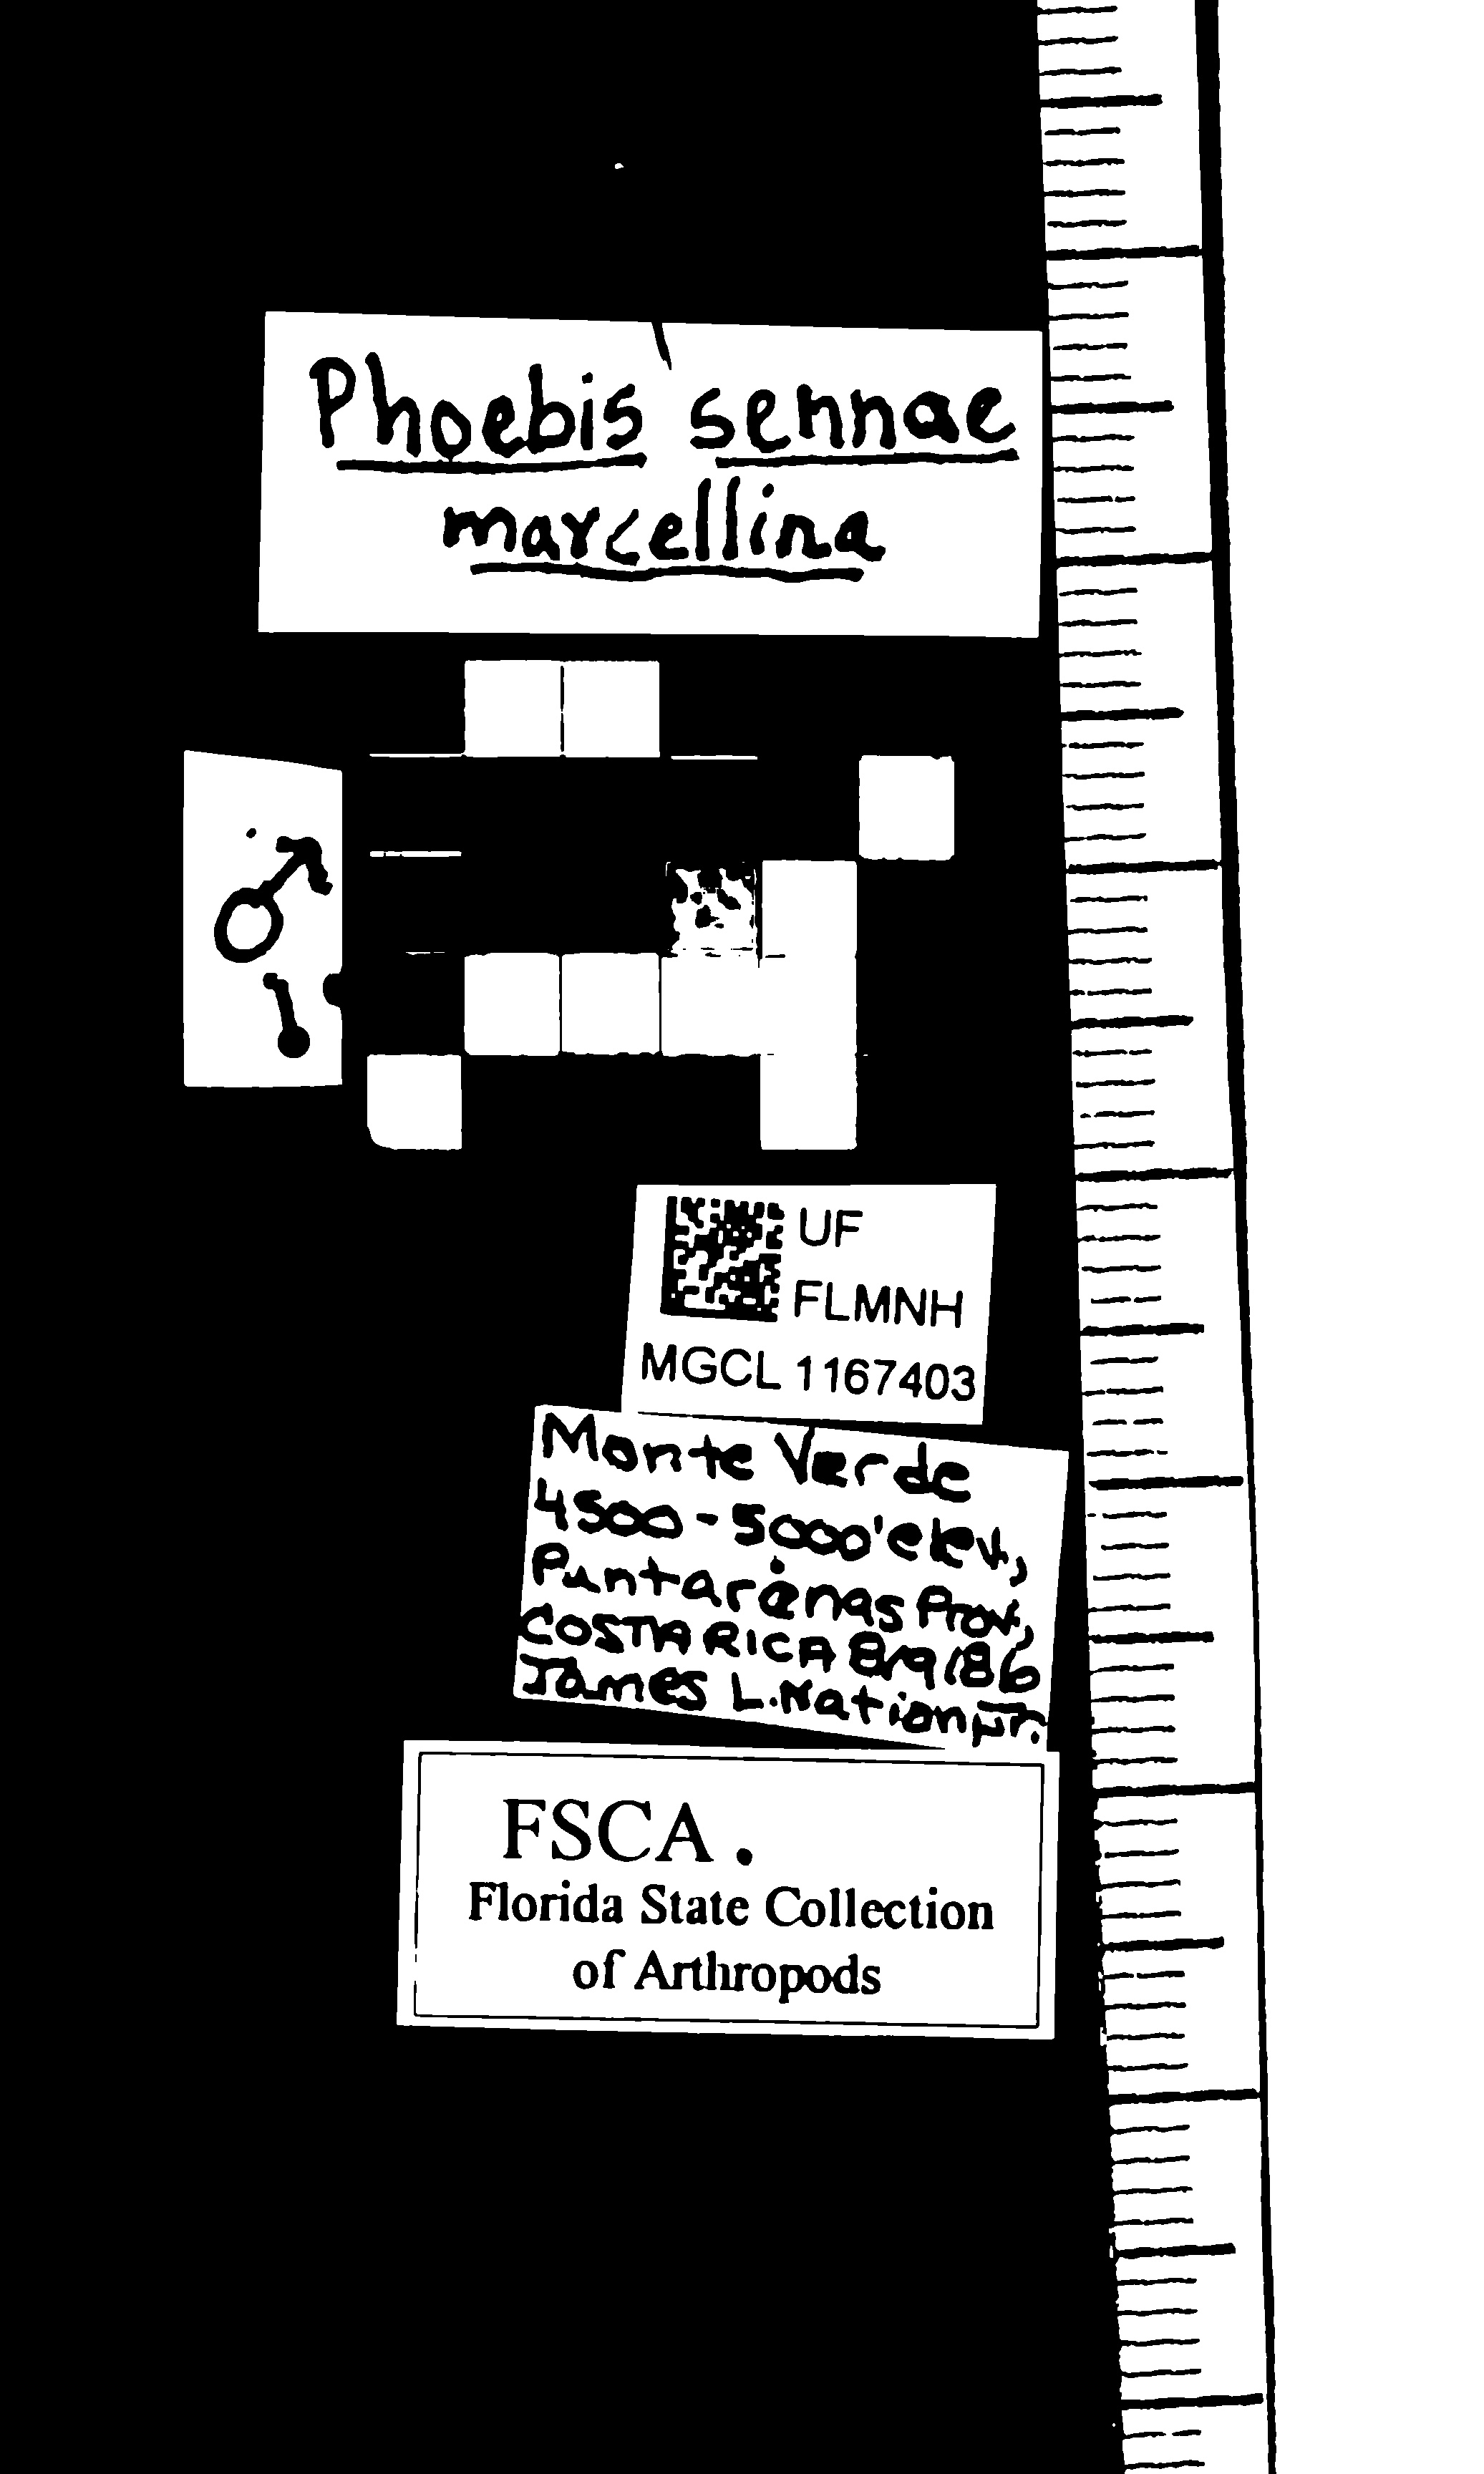 Phoebis sennae
marcellina
♂
UF
FLMNH
MGCL 1167403
Monte Verde
4500-5000' elev,
Puntarenas Prov,
COSTA RICA 8/9/86
James L. Nation Jr.
FSCA.
Florida State Collection
of Arthropods